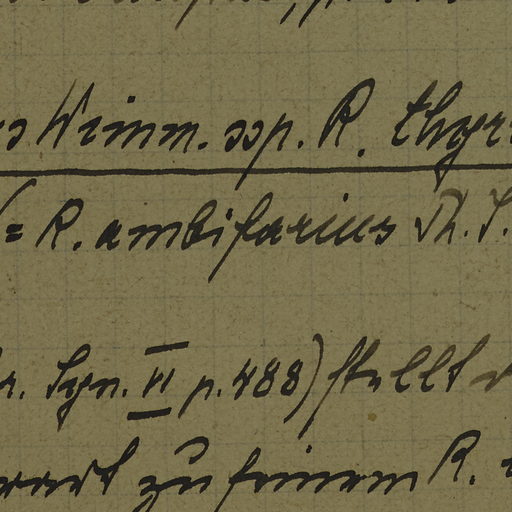 Wimm. ssp. R. thyr
(= R. ambifarius Ph. J.
Syn. VI p. 488) stellt
zu seinem R.